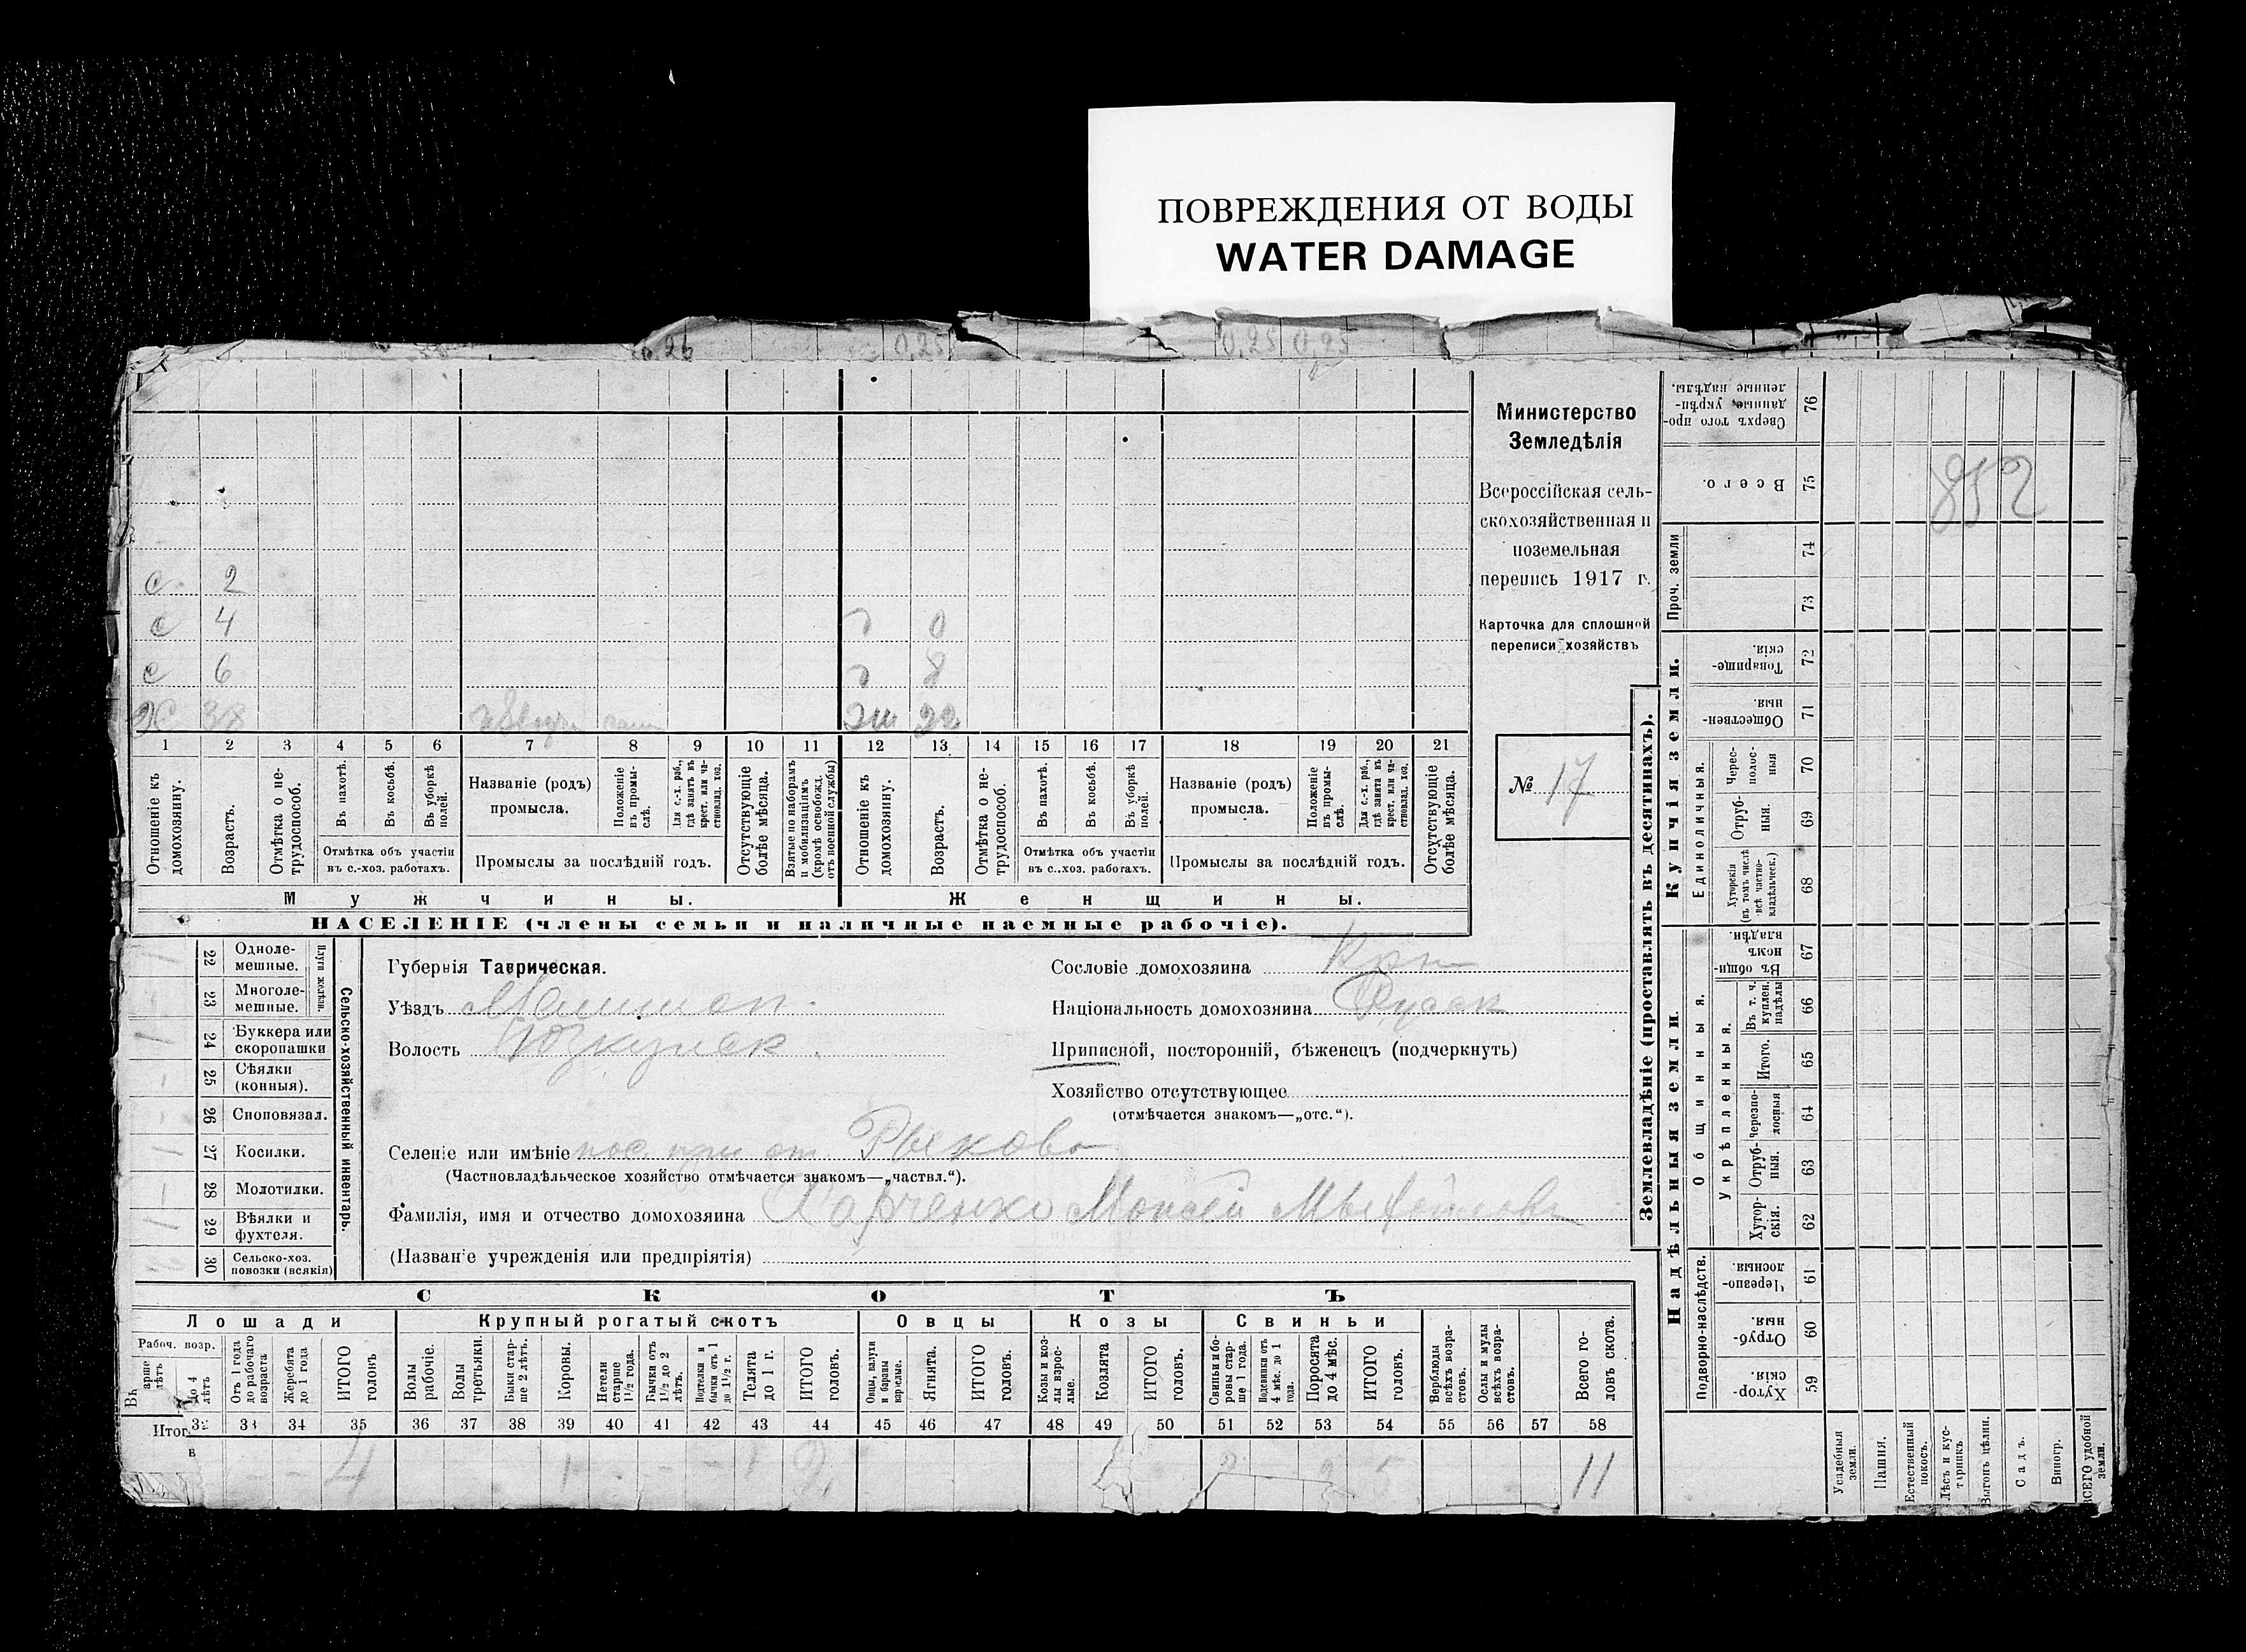 ПОВРЕЖДЕНИЯ ОТ ВОДЫ
WATER DAMAGE
0,26 0,25 0,25 0,25
Министерство
Земледѣлія
Всероссійская сель-
скохозяйственная и
поземельная
перепись 1917 г.
Карточка для сплошной
переписи хозяйствъ
№ 17
с 2
с 4 0
с 6 8
38 22
1 2 3 4 5 6 7 8 9 10 11 12 13 14 15 16 17 18 19 20 21
Отношеніе къ домохозяину.
Возрастъ.
Отмѣтка о не-трудоспособ.
Въ пахотѣ.
Въ косьбѣ.
Въ уборкѣ полей.
Отмѣтка объ участіи
въ с.-хоз. работахъ.
Названіе (родъ)
промысла.
Положеніе въ промы-слѣ.
Для с.-х. раб., гдѣ занятъ въ крест. или ча-стновлад. хоз.
Промыслы за послѣдній годъ.
Отсутствующіе болѣе мѣсяца.
Взятые по наборамъ и мобилизаціямъ (кромѣ освобожд. отъ военной службы)
Отношеніе къ домохозяину.
Возрастъ.
Отмѣтка о не-трудоспособ.
Въ пахотѣ.
Въ косьбѣ.
Въ уборкѣ полей.
Отмѣтка объ участіи
въ с..хоз. работахъ.
Названіе (родъ)
промысла.
Положеніе въ промы-слѣ.
Для с.-х. раб., гдѣ занятъ въ крест. или ча-стновлад. хоз.
Промыслы за послѣдній годъ.
Отсутствующіе болѣе мѣсяца.
Мужчины.
Женщины.
НАСЕЛЕНІЕ (члены семьи и наличные наемные рабочіе).
22 Одноле-мешные.
23 Многоле-мешные.
Плуги желѣзн.
24 Буккера или скоропашки
25 Сѣялки (конныя).
26 Сноповязал.
27 Косилки.
28 Молотилки.
29 Вѣялки и фухтеля.
30 Сельско-хоз. повозки (всякія)
Сельско-хозяйственный инвентарь.
Губернія Таврическая.
Уѣздъ
Волость
Селеніе или имѣніе пос. при ст. Рыково
(Частновладѣльческое хозяйство отмѣчается знакомъ—„частвл.“).
Фамилія, имя и отчество домохозяина Харченко Моисей
(Названіе учрежденія или предпріятія)
Сословіе домохозяина Кре
Національность домохозяина Русск
Приписной, посторонній, бѣженецъ (подчеркнуть)
Хозяйство отсутствующее
(отмѣчается знакомъ—„отс.“).
СКОТЪ
Лошади
Рабоч. возр.
до 4 лѣтъ
Отъ 1 года до рабочаго возраста
Жеребята до 1 года
ИТОГО головъ
Крупный рогатый скотъ
Волы рабочіе.
Волы третьяки.
Быки стар-ше 2 лѣтъ.
Коровы.
Нетели старше 1½ года.
Бычки отъ 1½ до 2 лѣтъ.
Нетелки и бычки отъ 1 до 1½ г.
Телята до 1 г.
ИТОГО головъ.
Овцы
Овцы, валухи и бараны взрослые.
Ягнята.
ИТОГО головъ.
Козы
Козы и коз-лы взрос-лые.
Козлята
ИТОГО головъ.
Свиньи
Свиньи и бо-ровы стар-ше 1 года.
Подсвинки отъ 4 мѣс. до 1 года.
Поросята до 4 мѣс.
ИТОГО головъ.
Верблюды всѣхъ возра-стовъ.
Ослы и мулы всѣхъ возра-стовъ.
Всего го-ловъ скота.
32 33 34 35 36 37 38 39 40 41 42 43 44 45 46 47 48 49 50 51 52 53 54 55 56 57 58
4 1 1 2 2 3 5 11
Землевладѣніе (проставлять въ десятинахъ).
Купчія земли.
Надѣльныя земли
76 Сверхъ того про-данные, укрѣп-ленные надѣлы.
75 Всего.
852
Проч. земли
74
73
72 Товарище-скія.
71 Обществен-ныя.
Единоличныя.
70 Черес-полос-ныя
69 Отруб-ныя.
68 Хуторскія (въ томъ числѣ всѣ частно-владѣльческ.)
Общинныя.
67 Въ общи-номъ владѣн.
Укрѣпленныя.
66 Въ т. ч. куплен. надѣлы
65 Итого.
64 Черезпо-лосныя
63 Отруб-ныя.
62 Хутор-скія.
Подворно-наслѣдств.
61 Черезпо-лосныя.
60 Отруб-ныя.
59 Хутор-скія.
Усадебныя земли.
Пашня.
Естественный покосъ.
Лѣсъ и кус-тарникъ
Выгонъ цѣлин.
Садъ.
Виногр.
ВСЕГО удобной земли.